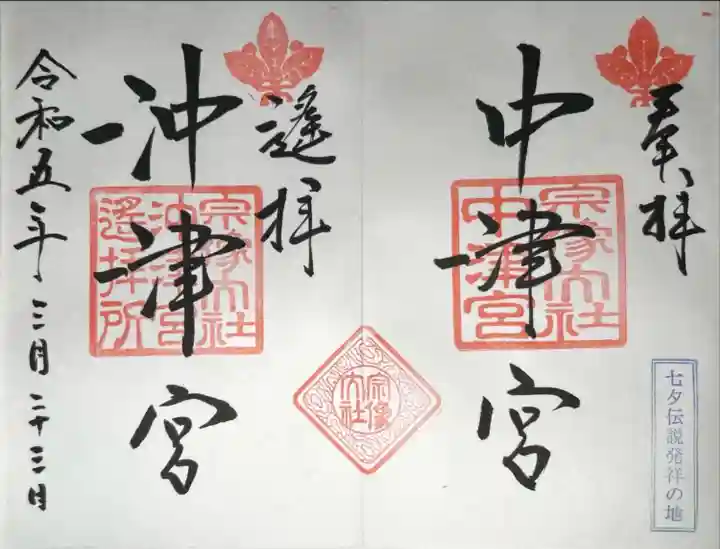 奉拝
中津宮
宗像大社
中津宮
七夕伝説発祥の地
遙拝
沖津宮
宗像大社
沖津宮
遙拝所
宗像
大社
令和五年三月二十三日